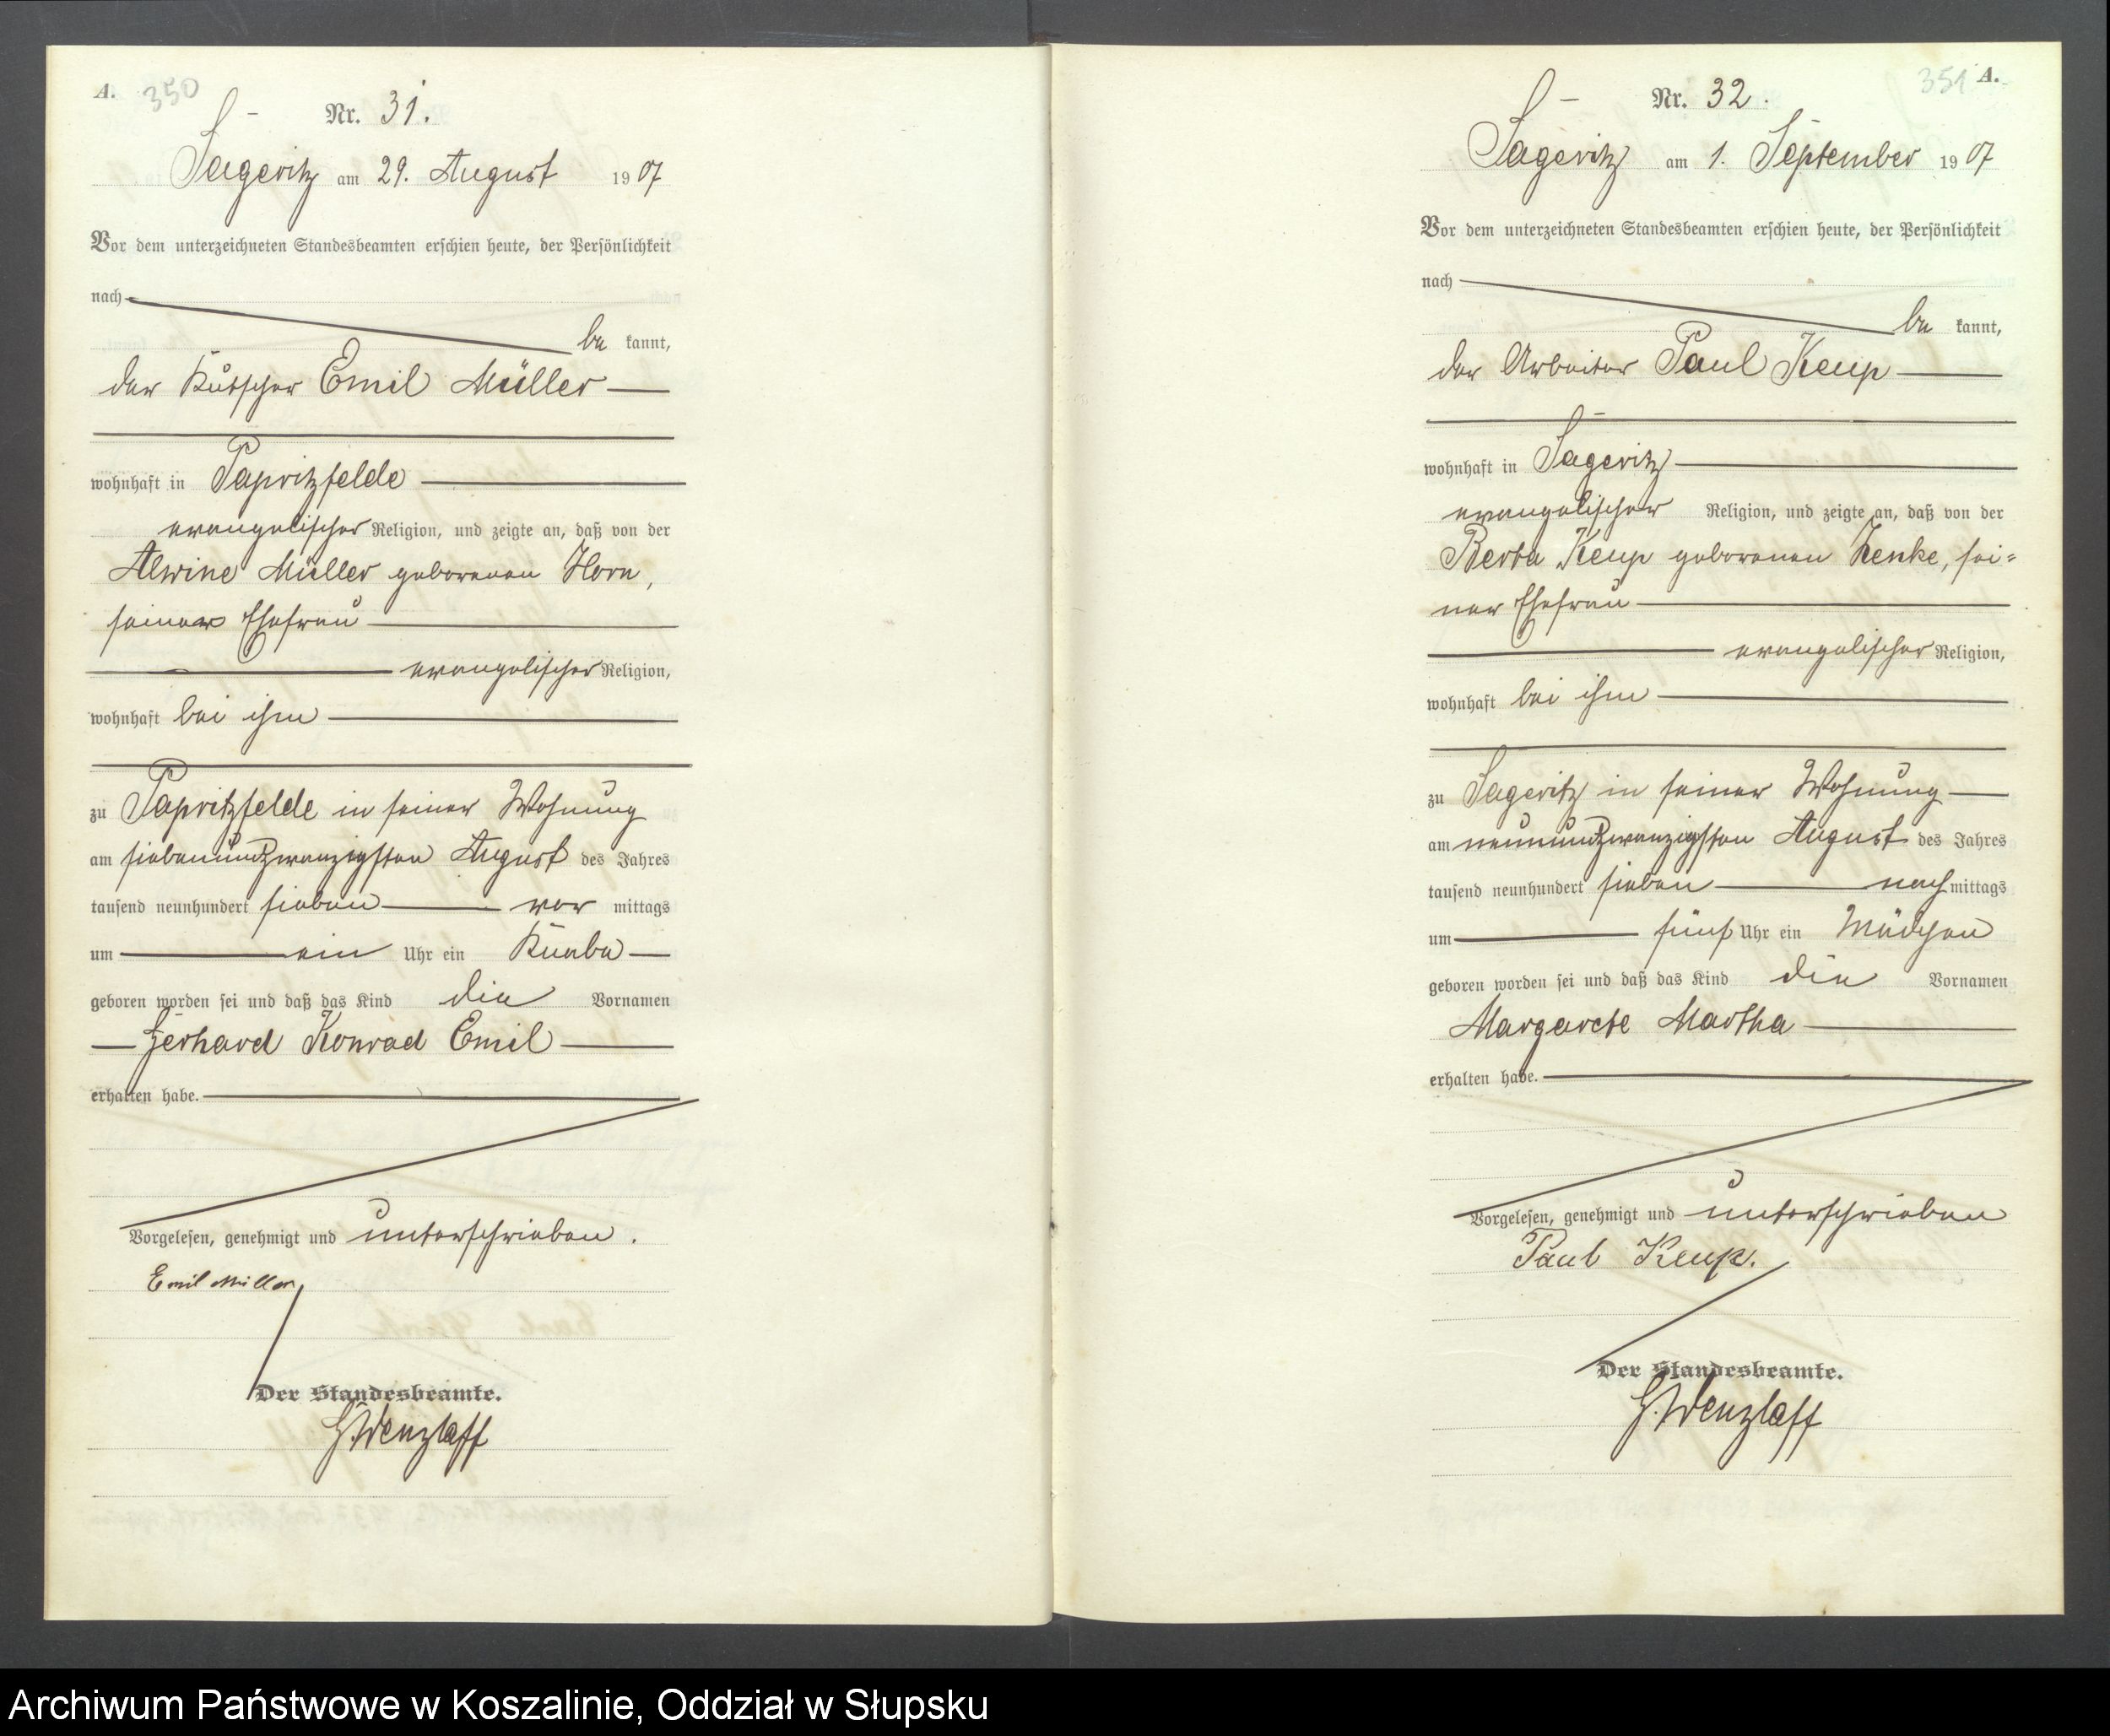 A. 350
Nr. 31.
Sageritz am 29. August 1907
Vor dem unterzeichneten Standesbeamten erschien heute, der Persönlichkeit
nach
be kannt,
der Kutscher Emil Müller
wohnhaft in Papritzfelde
evangelischer Religion, und zeigte an, daß von der
Alwine Müller geborenen Horn,
seiner Ehefrau
evangelischer Religion,
wohnhaft bei ihm
zu Papritzfelde in seiner Wohnung
am siebenundzwanzigsten August des Jahres
tausend neunhundert sieben vor mittags
um ein Uhr ein Knabe
geboren worden sei und daß das Kind die Vornamen
Gerhard Konrad Emil
erhalten habe.
Vorgelesen, genehmigt und unterschrieben.
Emil Müller
Der Standesbeamte.
Wenzlaff
351 A.
Nr. 32.
Sageritz am 1. September 1907
Vor dem unterzeichneten Standesbeamten erschien heute, der Persönlichkeit
nach
be kannt,
der Arbeiter Paul Keup
wohnhaft in Sageritz
evangelischer Religion, und zeigte an, daß von der
Berta Keup geborenen Henke, sei=
ner Ehefrau
evangelischer Religion,
wohnhaft bei ihm
zu Sageritz in seiner Wohnung
am neunundzwanzigsten August des Jahres
tausend neunhundert sieben nach mittags
um fünf Uhr ein Mädchen
geboren worden sei und daß das Kind die Vornamen
Margarete Martha
erhalten habe.
Vorgelesen, genehmigt und unterschrieben
Paul Keup.
Der Standesbeamte.
Wenzlaff
Archiwum Państwowe w Koszalinie, Oddział w Słupsku